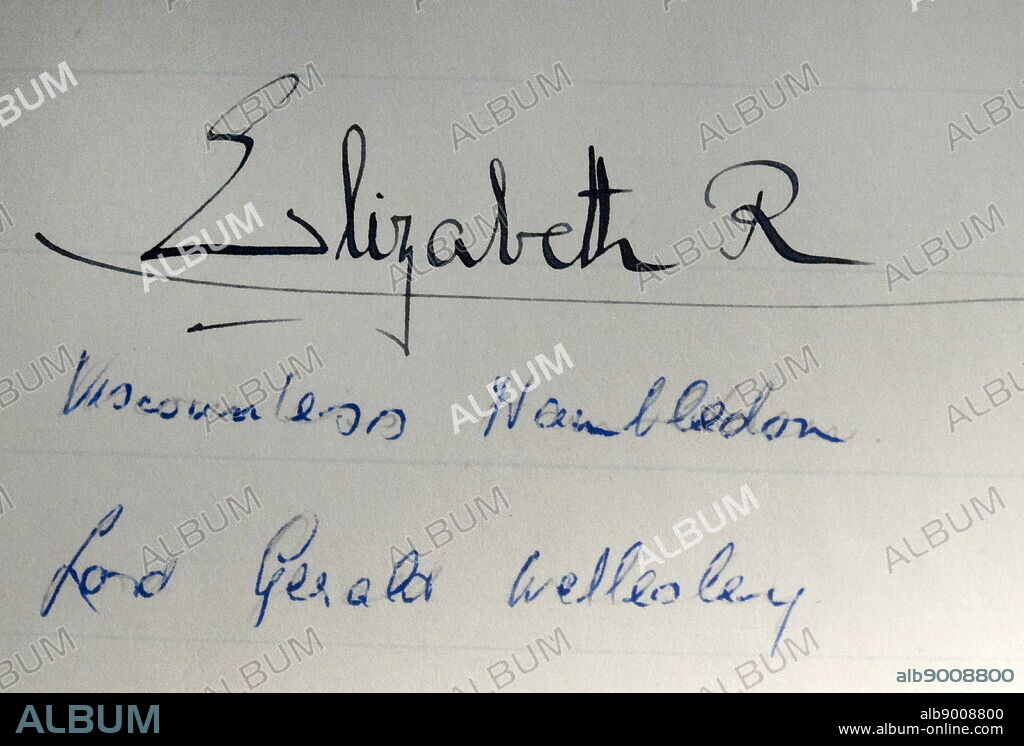 Elizabeth R
Viscountess Hambledon
Lord Gerald Wellesley
alb9008800
ALBUM
alb9008800
www.album-online.com